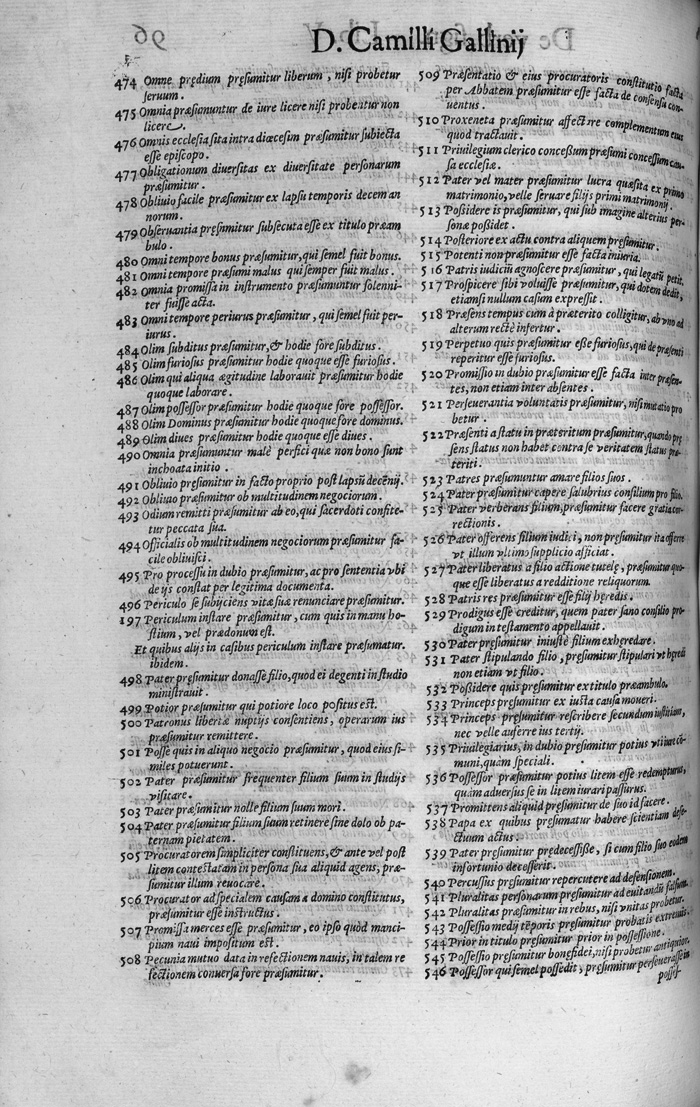 D. Camilli Gallinij
474 Omne prędium pręsumitur liberum, nisi probetur
seruum.
475 Omnia præsumuntur de iure licere nisi probentur non
licere.
476 Omnis ecclesia sita intra diœcesim præsumitur subiecta
esse episcopo.
477 Obligationum diuersitas ex diuersitate personarum
præsumitur.
478 Obliuio facile præsumitur ex lapsu temporis decem an
norum.
479 Obseruantia pręsumitur subsecuta esse ex titulo præam
bulo.
480 Omni tempore bonus præsumitur, qui semel fuit bonus.
481 Omni tempore præsumi malus qui semper fuit malus.
482 Omnia promissa in instrumento præsumuntur solenni-
ter fuisse acta.
483 Omni tempore periurus præsumitur, qui semel fuit per-
iurus.
484 Olim subditus præsumitur, & hodie fore subditus.
485 Olim furiosus præsumitur hodie quoque esse furiosus.
486 Olim qui aliqua ægitudine laborauit præsumitur hodie
quoque laborare.
487 Olim possessor præsumitur hodie quoque fore possessor.
488 Olim Dominus præsumitur hodie quoque fore dominus.
489 Olim diues præsumitur hodie quoque esse diues.
490 Omnia præsumuntur malè perfici quæ non bono sunt
inchoata initio.
491 Obliuio pręsumitur in facto proprio post lapsũ decẽnij.
492 Obliuio præsumitur ob multitudinem negociorum.
493 Odium remitti præsumitur ab eo, qui sacerdoti confite-
tur peccata sua.
494 Officialis ob multitudinem negociorum præsumitur fa-
cile obliuisci.
495 Pro processu in dubio præsumitur, ac pro sententia vbi
de ijs constat per legitima documenta.
496 Periculo se subijciens vitæ suæ renunciare præsumitur.
197 Periculum instare præsumitur, cum quis in manu ho-
stium, vel prædonum est.
Et quibus alijs in casibus periculum instare præsumatur.
ibidem.
498 Pater pręsumitur donasse filio, quod ei degenti in studio
ministrauit.
499 Potior præsumitur qui potiore loco positus est.
500 Patronus libertæ nuptijs consentiens, operarum ius
præsumitur remittere.
501 Posse quis in aliquo negocio præsumitur, quod eius si-
miles potuerunt.
502 Pater præsumitur frequenter filium suum in studijs
visitare.
503 Pater præsumitur nolle filium suum mori.
504 Pater præsumitur filium suum retinere sine dolo ob pa-
ternam pietatem.
505 Procuratorem simpliciter constituens, & ante vel post
litem contestatam in persona sua aliquid agens, præ-
sumitur illum reuocare.
506 Procurator ad specialem causam a domino constitutus,
præsumitur esse instructus.
507 Promissa merces esse præsumitur, eo ipso quòd manci-
pium naui impositum est.
508 Pecunia mutuo data in refectionem nauis, in talem re
fectionem conuersa fore præsumitur.
509 Præsentatio & eius procuratoris constitutio facta
per Abbatem præsumitur esse facta de consensu con-
uentus.
510 Proxeneta præsumitur affectare complementum eius
quod tractauit.
511 Priuilegium clerico concessum præsumi concessum cau-
sa ecclesiæ.
512 Pater vel mater præsumitur lucra quæsita ex primo
matrimonio, velle seruare filijs primi matrimonij.
513 Possidere is præsumitur, qui sub imagine alterius per-
sonæ possidet.
514 Posteriore ex actu contra aliquem pręsumitur.
515 Potenti non præsumitur esse facta iniuria.
516 Patris iudiciũ agnoscere præsumitur, qui legatũ petit.
517 Prospicere sibi voluisse præsumitur, qui dotem dedit,
etiamsi nullum casum expressit.
518 Præsens tempus cum à præterito colligitur, ab vno ad
alterum rectè infertur.
519 Perpetuo quis præsumitur esse furiosus, qui de præsenti
reperitur esse furiosus.
520 Promissio in dubio præsumitur esse facta inter præsen-
tes, non etiam inter absentes.
521 Perseuerantia voluntatis præsumitur, nisi mutatio pro
betur.
522 Præsenti a statu in præteritum præsumitur, quando prę
sens status non habet contra se veritatem status præ-
teriti.
523 Patres præsumuntur amare filios suos.
524 Pater præsumitur capere salubrius consilium pro filio.
525 Pater verberans filium, præsumitur facere gratia cor-
rectionis.
526 Pater offerens filium iudici, non pręsumitur ita offerre
vt illum vltimo supplicio afficiat.
527 Pater liberatus a filio actione tutelę, præsumitur quo-
que esse liberatus a redditione reliquorum.
528 Patris res præsumitur esse filij hęredis.
529 Prodigus esse creditur, quem pater sano consilio pro-
digum in testamento appellauit.
530 Pater pręsumitur iniustè filium exhęredare.
531 Pater stipulando filio, pręsumitur stipulari vt hęredi
non etiam vt filio.
532 Possidere quis pręsumitur ex titulo præambulo.
533 Princeps pręsumitur ex iusta causa moueri.
534 Princeps pręsumitur rescribere secundum iustitiam,
nec velle auferre ius tertij.
535 Priuilegiarius, in dubio pręsumitur potius vti iure cõ-
muni, quàm speciali.
536 Possessor præsumitur potius litem esse redempturus,
quàm aduersus se in litem iurari passurus.
537 Promittens aliquid pręsumitur de suo id facere.
538 Papa ex quibus pręsumatur habere scientiam defe-
ctuum actus.
539 Pater pręsumitur prędecessisse, si cum filio suo eodem
infortunio decesserit.
540 Percussus pręsumitur repercutere ad defensionem.
541 Pluralitas personarum pręsumitur ad euitandũ falsum.
542 Pluralitas pręsumitur in rebus, nisi vnitas probetur.
543 Possessio medij tẽporis pręsumitur probatis extremis.
544 Prior in titulo pręsumitur prior in possessione.
545 Possessio pręsumitur bonæ fidei, nisi probetur antiquior.
546 Possessor qui semel possedit, pręsumitur perseuerasse in
posses-